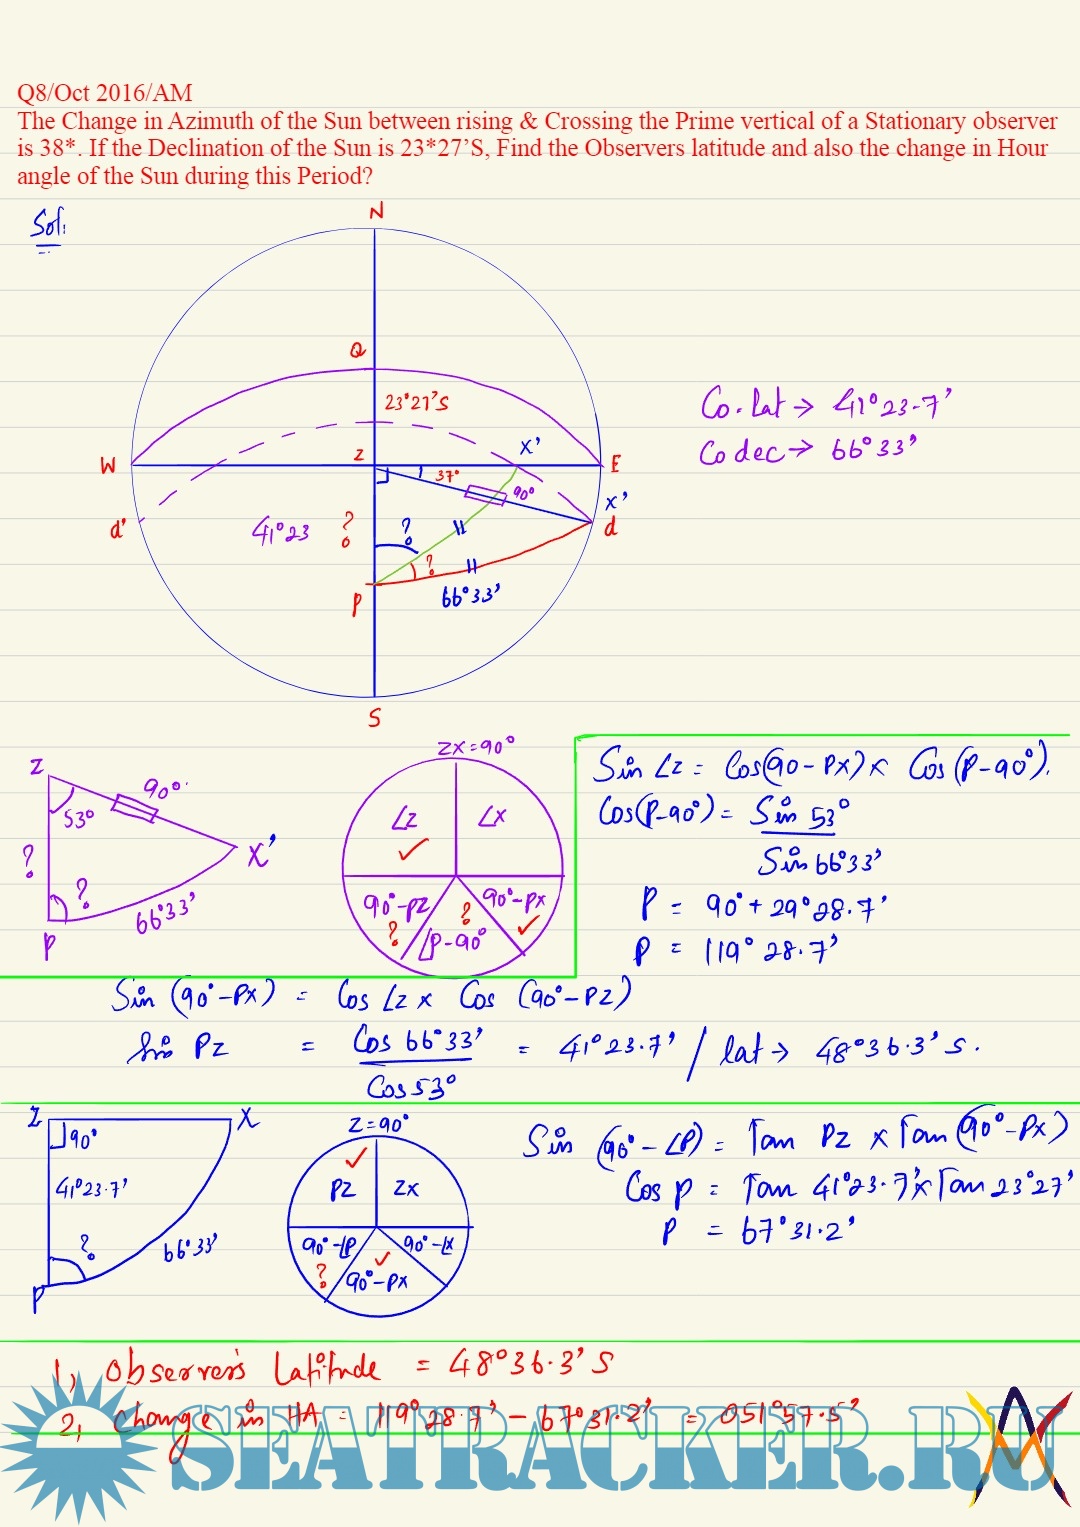 Q8/Oct 2016/AM
The Change in Azimuth of the Sun between rising & Crossing the Prime vertical of a Stationary observer
is 38*. If the Declination of the Sun is 23*27’S, Find the Observers latitude and also the change in Hour
angle of the Sun during this Period?
Sol:
N
Q
23°27'S
W
Z
X'
E
37°
90°
X'
d'
d
41°23
?
?
?
P
66°33'
S
Co.lat → 41°23.7'
Co dec → 66°33'
Z
90°
53°
X'
?
?
66°33'
P
ZX=90°
∠Z
∠X
90°-PZ
?
∠P-90°
?
90°-PX
Sin ∠Z = Cos(90-PX) x Cos (P-90°).
Cos(P-90°) = Sin 53°
Sin 66°33'
P = 90° + 29°28.7'
P = 119° 28.7'
Sin (90°-PX) = Cos ∠Z x Cos (90°-PZ)
Sin PZ = Cos 66°33' = 41°23.7' / lat → 48°36.3' S.
Cos 53°
Z
X
90°
41°23.7'
?
66°33'
P
Z=90°
PZ
ZX
90°-∠P
?
90°-PX
90°-∠X
Sin (90°-∠P) = Tan PZ x Tan (90°-PX)
Cos P = Tan 41°23.7' x Tan 23°27'
P = 67°31.2'
1, Observer's Latitude = 48°36.3' S
2, Change in HA = 119°28.7' - 67°31.2' = 051°57.5'
SEATRACKER.RU